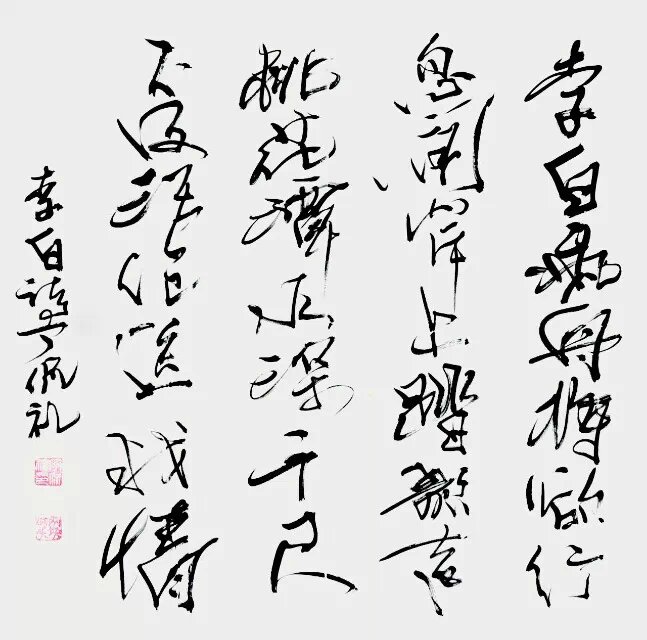 李白乘舟将欲行
忽闻岸上踏歌声
桃花潭水深千尺
不及汪伦送我情
李白诗 佩礼